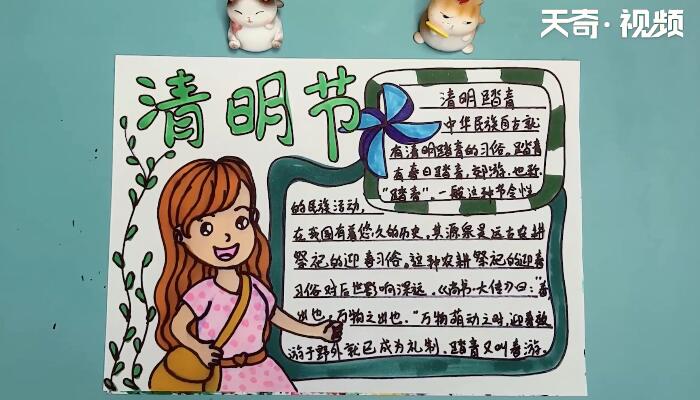 天奇·视频
清明节
清明踏青
中华民族自古就
有清明踏青的习俗。踏青
有春日踏青、郊游,也称
"踏春",一般这种节令性
的民族活动,
在我国有着悠久的历史,其源泉是远古农耕
祭祀的迎春习俗。这种农耕祭祀的迎春
习俗对后世影响深远。《尚书·大传》曰:"春,
出也,万物之出也。"万物萌动之时,迎春
游于野外就已成为礼制,踏青又叫春游,